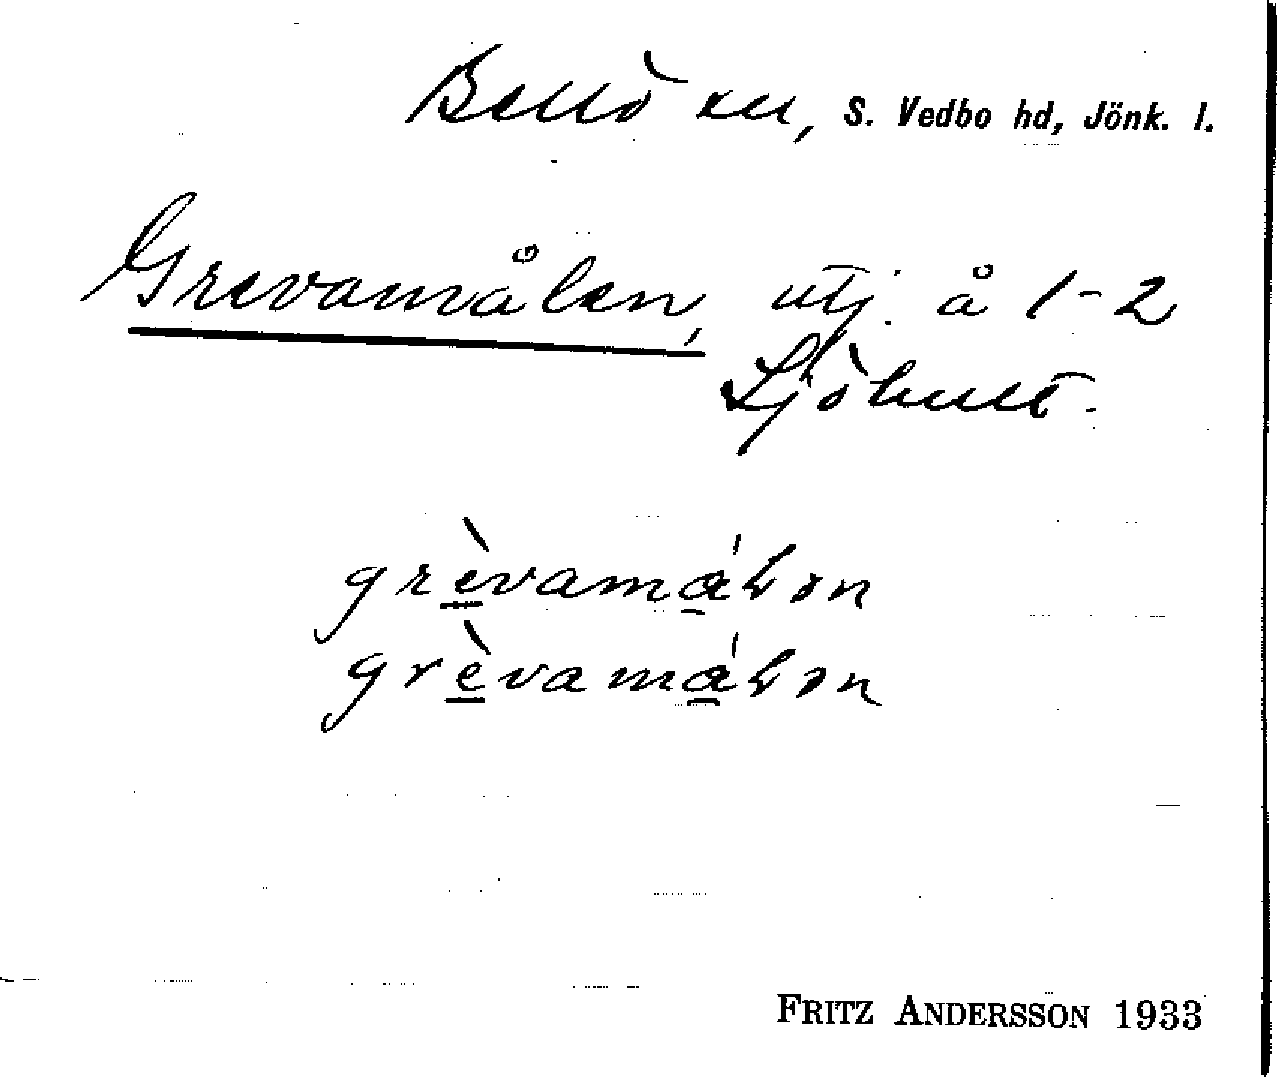 Bellö sn, S. Vedbo hd, Jönk. l.
Grevamålen, utj. å 1-2
Sjöhult.
grèvamálən
grèvamálən
FRITZ ANDERSSON 1933